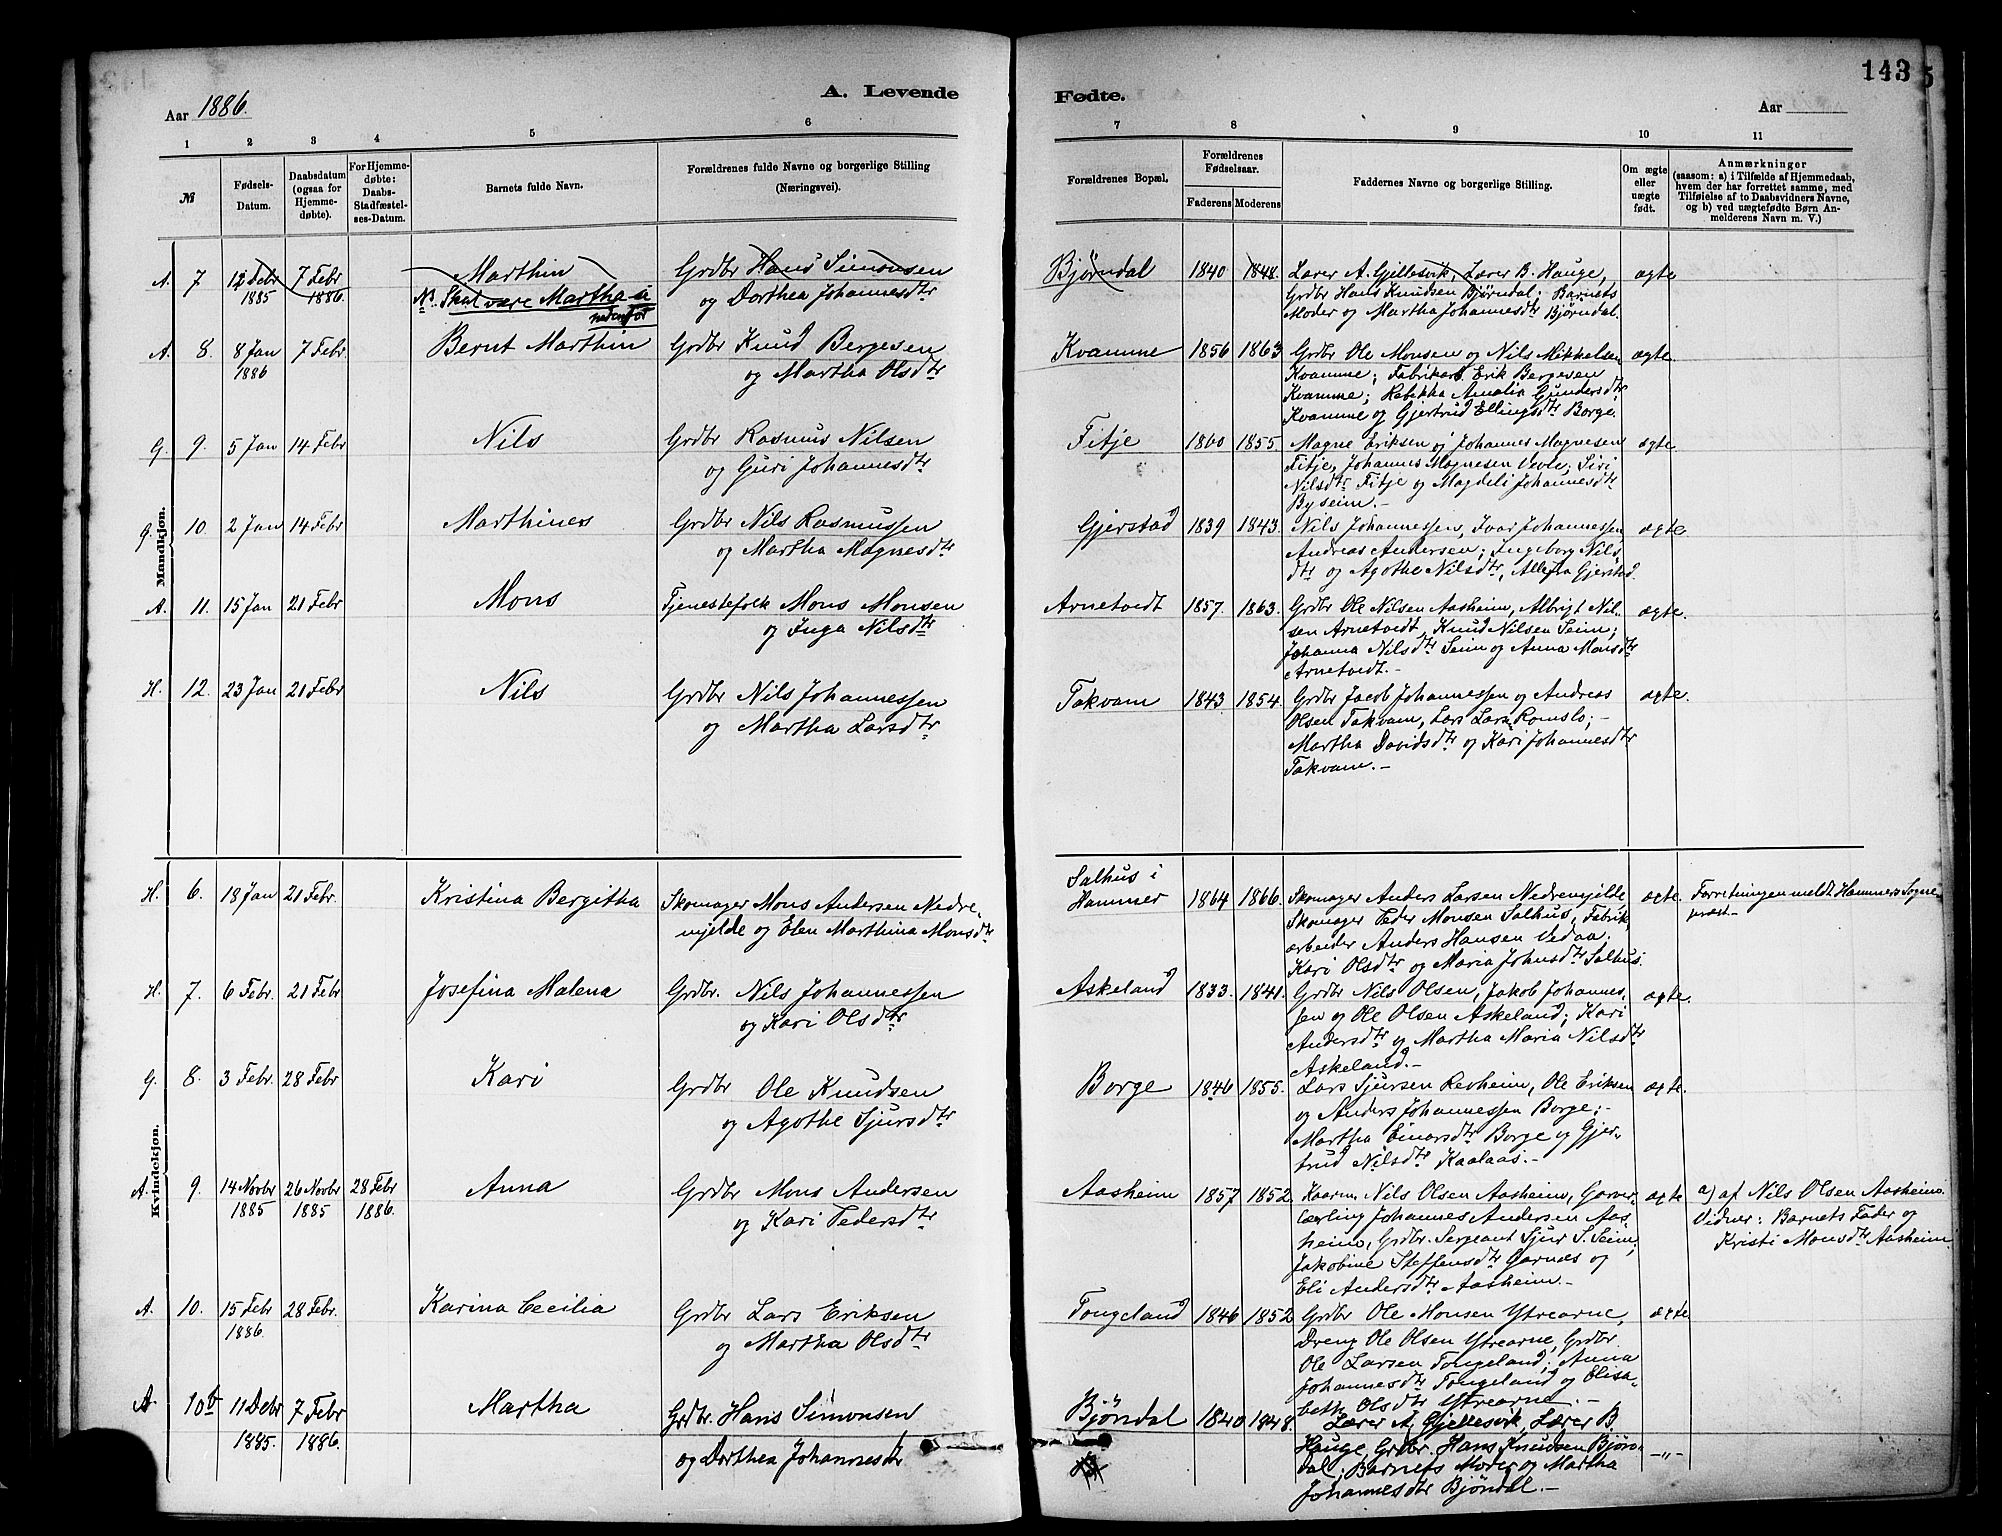 143
5
Aar 1886.
A. Levende
Fødte.
Aar
1 2 3 4 5 6 7 8 9 10 11
№
Fødsels-
Datum.
Daabsdatum
(ogsaa for
Hjemme-
døbte).
For Hjemme-
døbte:
Daabs-
Stadfæstel-
ses-Datum.
Barnets fulde Navn.
Forældrenes fulde Navne og borgerlige Stilling
(Næringsvei).
Forældrenes Bopæl,
Forældrenes
Fødselsaar.
Faderens Moderens
Faddernes Navne og borgerlige Stilling.
Om ægte
eller
uægte
født.
Anmærkninger
(saasom: a) i Tilfælde af Hjemmedaab,
hvem der har forrettet samme, med
Tilføielse af to Daabsvidners Navne,
og b) ved uægtefødte Børn An-
melderens Navn m. V.)
Mandkjøn.
A. 7 12 Debr 7 Febr Marthin Grdbr Hans Simonsen Bjørndal 1840 1848. Lærer A. Gjellesvik, Lærer B. Hauge, ægte
1885 1886. NB. Skal være Martha nedenfor og Dorthea Johannesdtr Grdbr Hans Knudsen Bjørndal; Barnets
Moder og Martha Johannesdtr Bjørndal.
A. 8. 8 Jan 7 Febr. Bernt Marthin Grdbr Knud Bergesen Kvamme 1856 1863 Grdbr Ole Monsen og Nils Mikkelsen ægte
1886 og Martha Olsdtr Kvamme; Fabrikarb. Erik Bergesen
Kvamme; Rebekka Amalia Gundersdtr
Kvamme og Gjertrud Ellingsdtr Borge.
G. 9. 5 Jan 14 Febr Nils Grdbr Rasmus Nilsen Fitje 1855. Magne Eriksen og Johannes Magnesen ægte
og Guri Johannesdtr Fitje, Johannes Magnesen Vevle; Siri
Nilsdtr Fitje og Magdeli Johannesdtr
Byseim.-
G. 10 2 Jan 14 Febr Marthines Grdbr Nils Rasmussen Gjerstad 1839 1843. Nils Johannessen, Ivar Johannessen, ægte
og Martha Magnesdtr Andreas Andersen; Ingeborg Nils-
dtr og Agothe Nilsdtr, Alle fra Gjerstad.
A. 11. 15 Jan 21 Febr Mons Tjenestefolk Mons Monsen Arnetvedt 1857. 1863. Grdbr Ole Nilsen Aasheim, Albrigt Nil- ægte.
og Inga Nilsdtr sen Arnetvedt, Knud Nilsen Seim;
Johanna Nilsdtr Seim og Anna Monsdtr
Arnetvedt.-
H. 12. 23 Jan 21 Febr Nils Grdbr Nils Johannessen Takvam 1843 1854. Grdbr Jacob Johannessen og Andreas ægte.
og Martha Larsdtr Olsen Takvam, Lars Lars. Romslo; -
Martha Davidsdtr og Kari Johannesdtr
Takvam.-
Kvindekjøn.
H. 6. 18 Jan 21 Febr. Kristina Bergitha Skomager Mons Andersen Nedre- Salhus i Hammer 1864 1866. Skomager Anders Larsen Nedremjelde, ægte. Forretningen meldt Hammers Sogne-
mjelde og Elen Marthina Monsdtr Skomager Peder Monsen Salhus, Fabrik- præst-
arbeider Anders Hansen Vedaa.
Kari Olsdtr og Maria Johnsdtr Salhus.
H. 7. 6 Febr. 21 Febr Josefina Malena Grdbr. Nils Johannessen Askeland 1833. 1841. Grdbr Nils Olsen, Jakob Johannes- ægte.
og Kari Olsdtr sen og Ole Olsen Askeland; Kari
Andersdtr og Martha Maria Nilsdtr
Askeland.-
G. 8. 3 Febr. 28 Febr Kari Grdbr Ole Knudsen Borge 1840 1855. Lars Sjursen Revheim, Ole Eriksen ægte.
og Agothe Sjursdtr og Anders Johannessen Borge; -
Martha Einarsdtr Borge og Gjer-
trud Nilsdtr Kaalaas.-
A. 9. 14 Novbr 26 Novbr 28 Febr Anna Grdbr Mons Andersen Aasheim 1857 1852. Kaarm. Nils Olsen Aasheim, Garver- ægte a) af Nils Olsen Aasheim.
1885 1885 1886. og Kari Pedersdtr lærling Johannes Andersen Aas- Vidner: Barnets Fader og
heim, Grdbr. Sergeant Sjur S. Seim; Kristi Monsdtr Aasheim.
Jakobine Steffensdtr Garnæs og
Eli Andersdtr Aasheim.-
A. 10. 15 Febr 28 Febr. Karina Cecilia Grdbr Lars Eriksen Tongeland 1846 1852 Grdbr Ole Monsen Ytrearne, ægte
1886. og Martha Olsdtr Dreng Ole Olsen Ytrearne, Grdbr.
Ole Larsen Tongeland; Anna
Johannesdtr Tongeland og Elisa-
beth Olsdtr Ytrearne.-
A. 10b 11 Debr 7 Febr Martha Grdbr. Hans Simonsen Bjöndal 1840 1848. Lærer A. Gjellesvik, Lærer B.
1885. 1886. og Dorthea Johannesdtr Hauge, Grdbr. Hans Knudsen Bjön- -„-
dal; Barnets Moder og Martha
Johannesdtr Bjöndal.-